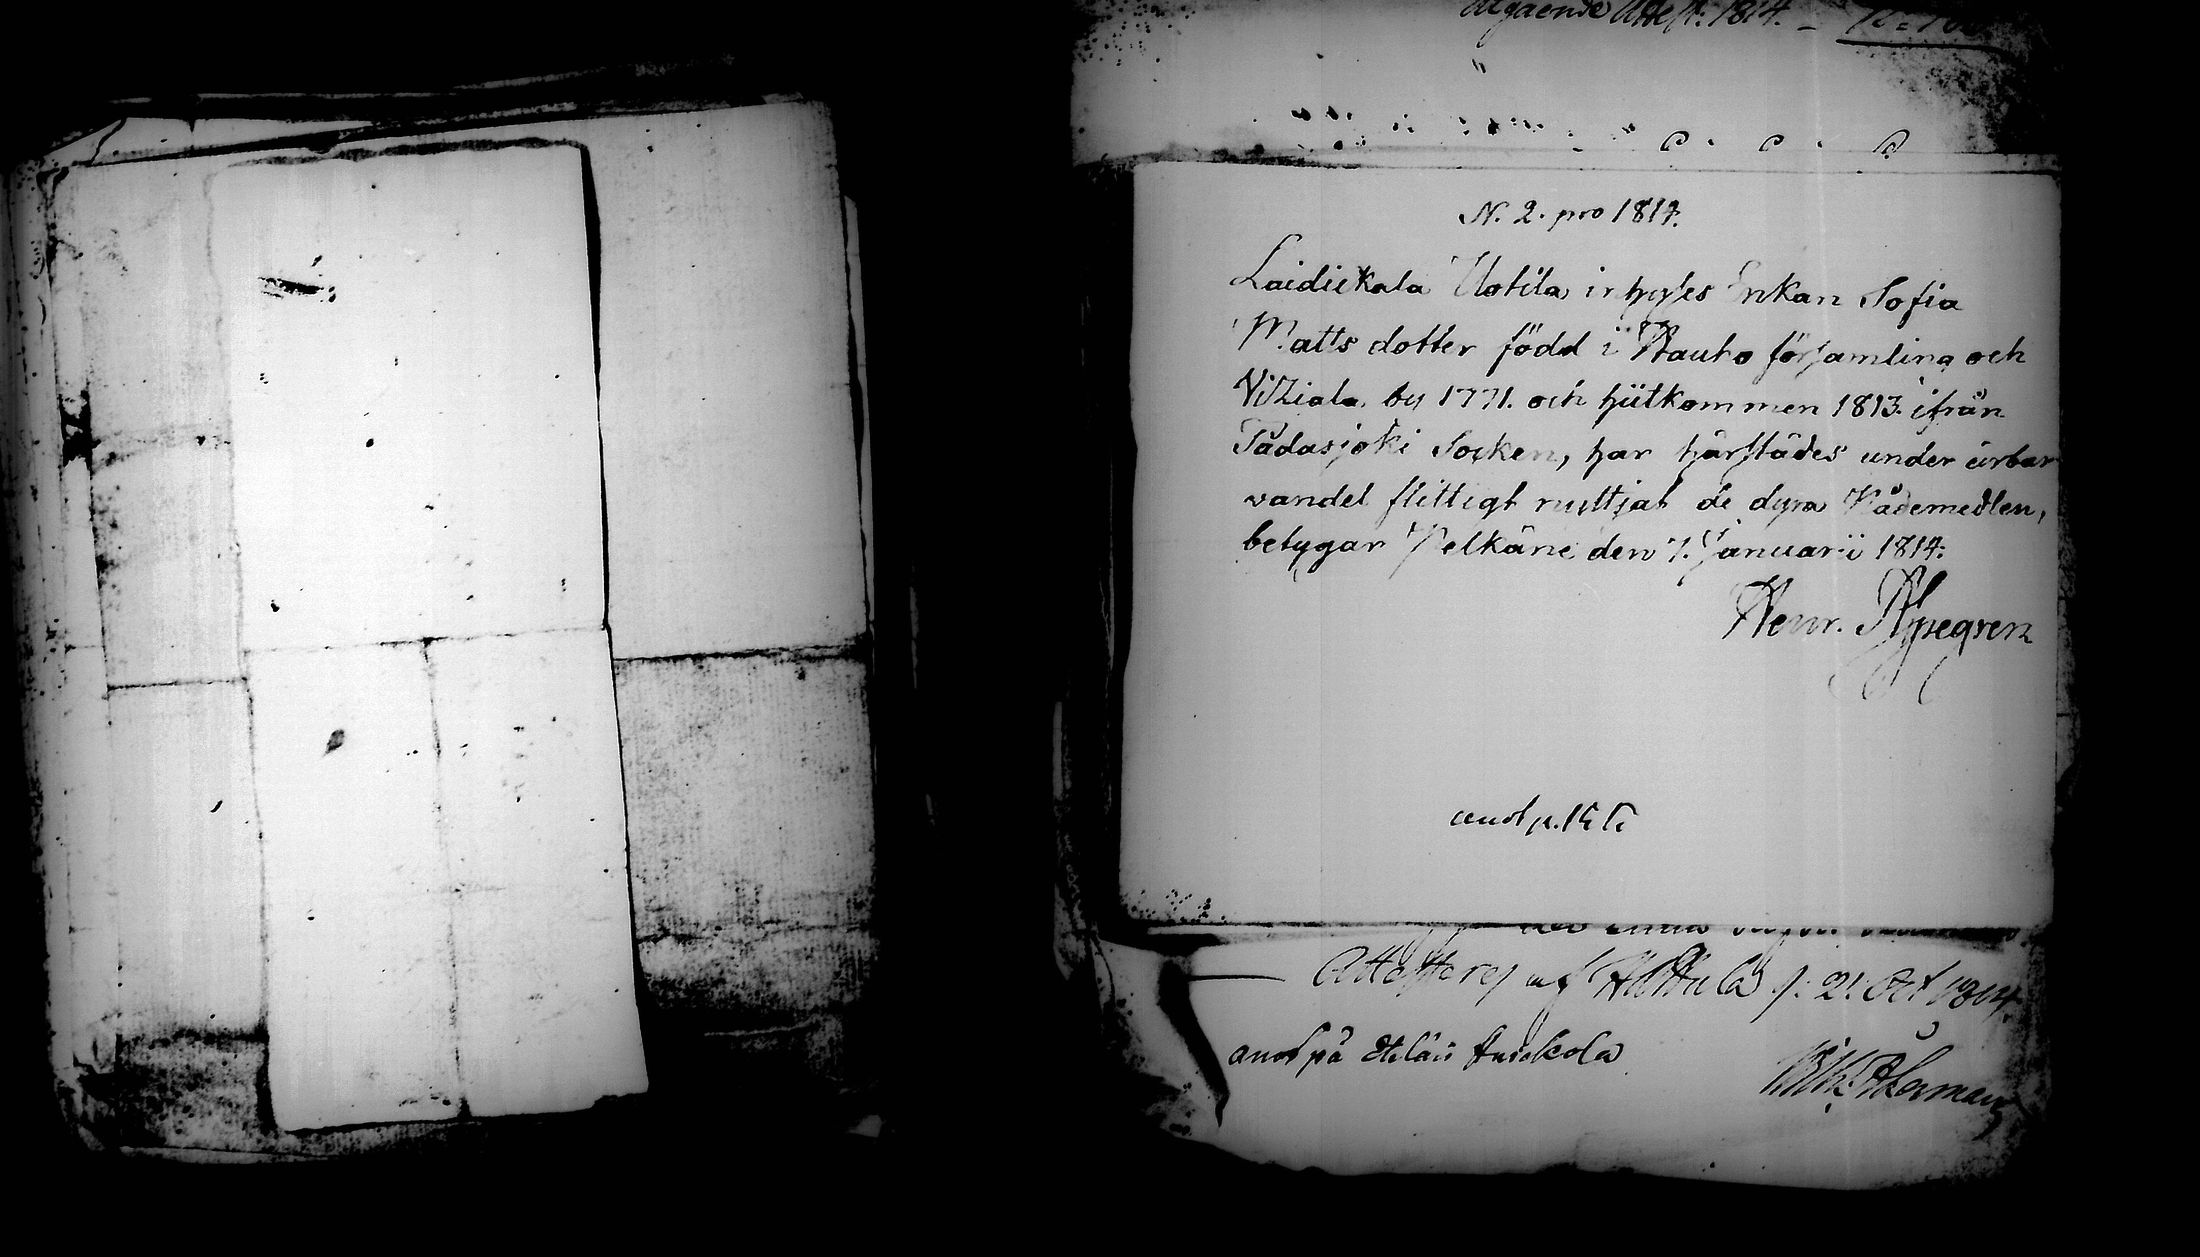 utgående Attest: 1814. –
N. 2. pro 1814.
Laidickala Uotila inhyses Enkan Sofia
Matts dotter född i Hauho församling och
Vitziala by 1771. och hitkommen 1813. ifrån
Padasjoki Socken, har härstädes under ärbar
vandel flittigt nyttjat de dyra Nådemedlen,
betygar Pelkäne den 7. Januarii 1814.
Henr. Ahlsegren
anot p.
af Hattula 21 Oct 1814.
anot på
Åkerman